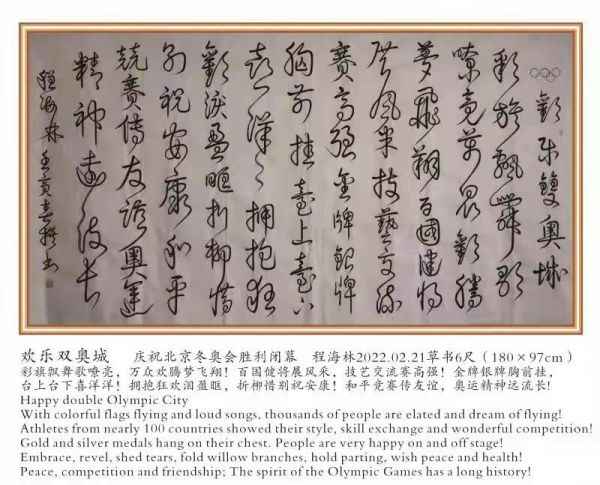 歡樂雙奧城
彩旗飄舞歌
嘹亮萬眾歡騰
夢飛翔百國健將
展風采技藝交流
賽高强金牌銀牌
胸前挂臺上臺下
喜洋洋擁抱狂
歡淚盈眶折柳惜
别祝安康和平
競賽傳友誼奧運
精神遠流長
程海林壬寅春
欢乐双奥城 庆祝北京冬奥会胜利闭幕 程海林2022.02.21草书6尺（180×97cm）
彩旗飘舞歌嘹亮，万众欢腾梦飞翔！百国健将展风采，技艺交流赛高强！金牌银牌胸前挂，
台上台下喜洋洋！拥抱狂欢泪盈眶，折柳惜别祝安康！和平竞赛传友谊，奥运精神远流长！
Happy double Olympic City
With colorful flags flying and loud songs, thousands of people are elated and dream of flying!
Athletes from nearly 100 countries showed their style, skill exchange and wonderful competition!
Gold and silver medals hang on their chest. People are very happy on and off stage!
Embrace, revel, shed tears, fold willow branches, hold parting, wish peace and health!
Peace, competition and friendship; The spirit of the Olympic Games has a long history!